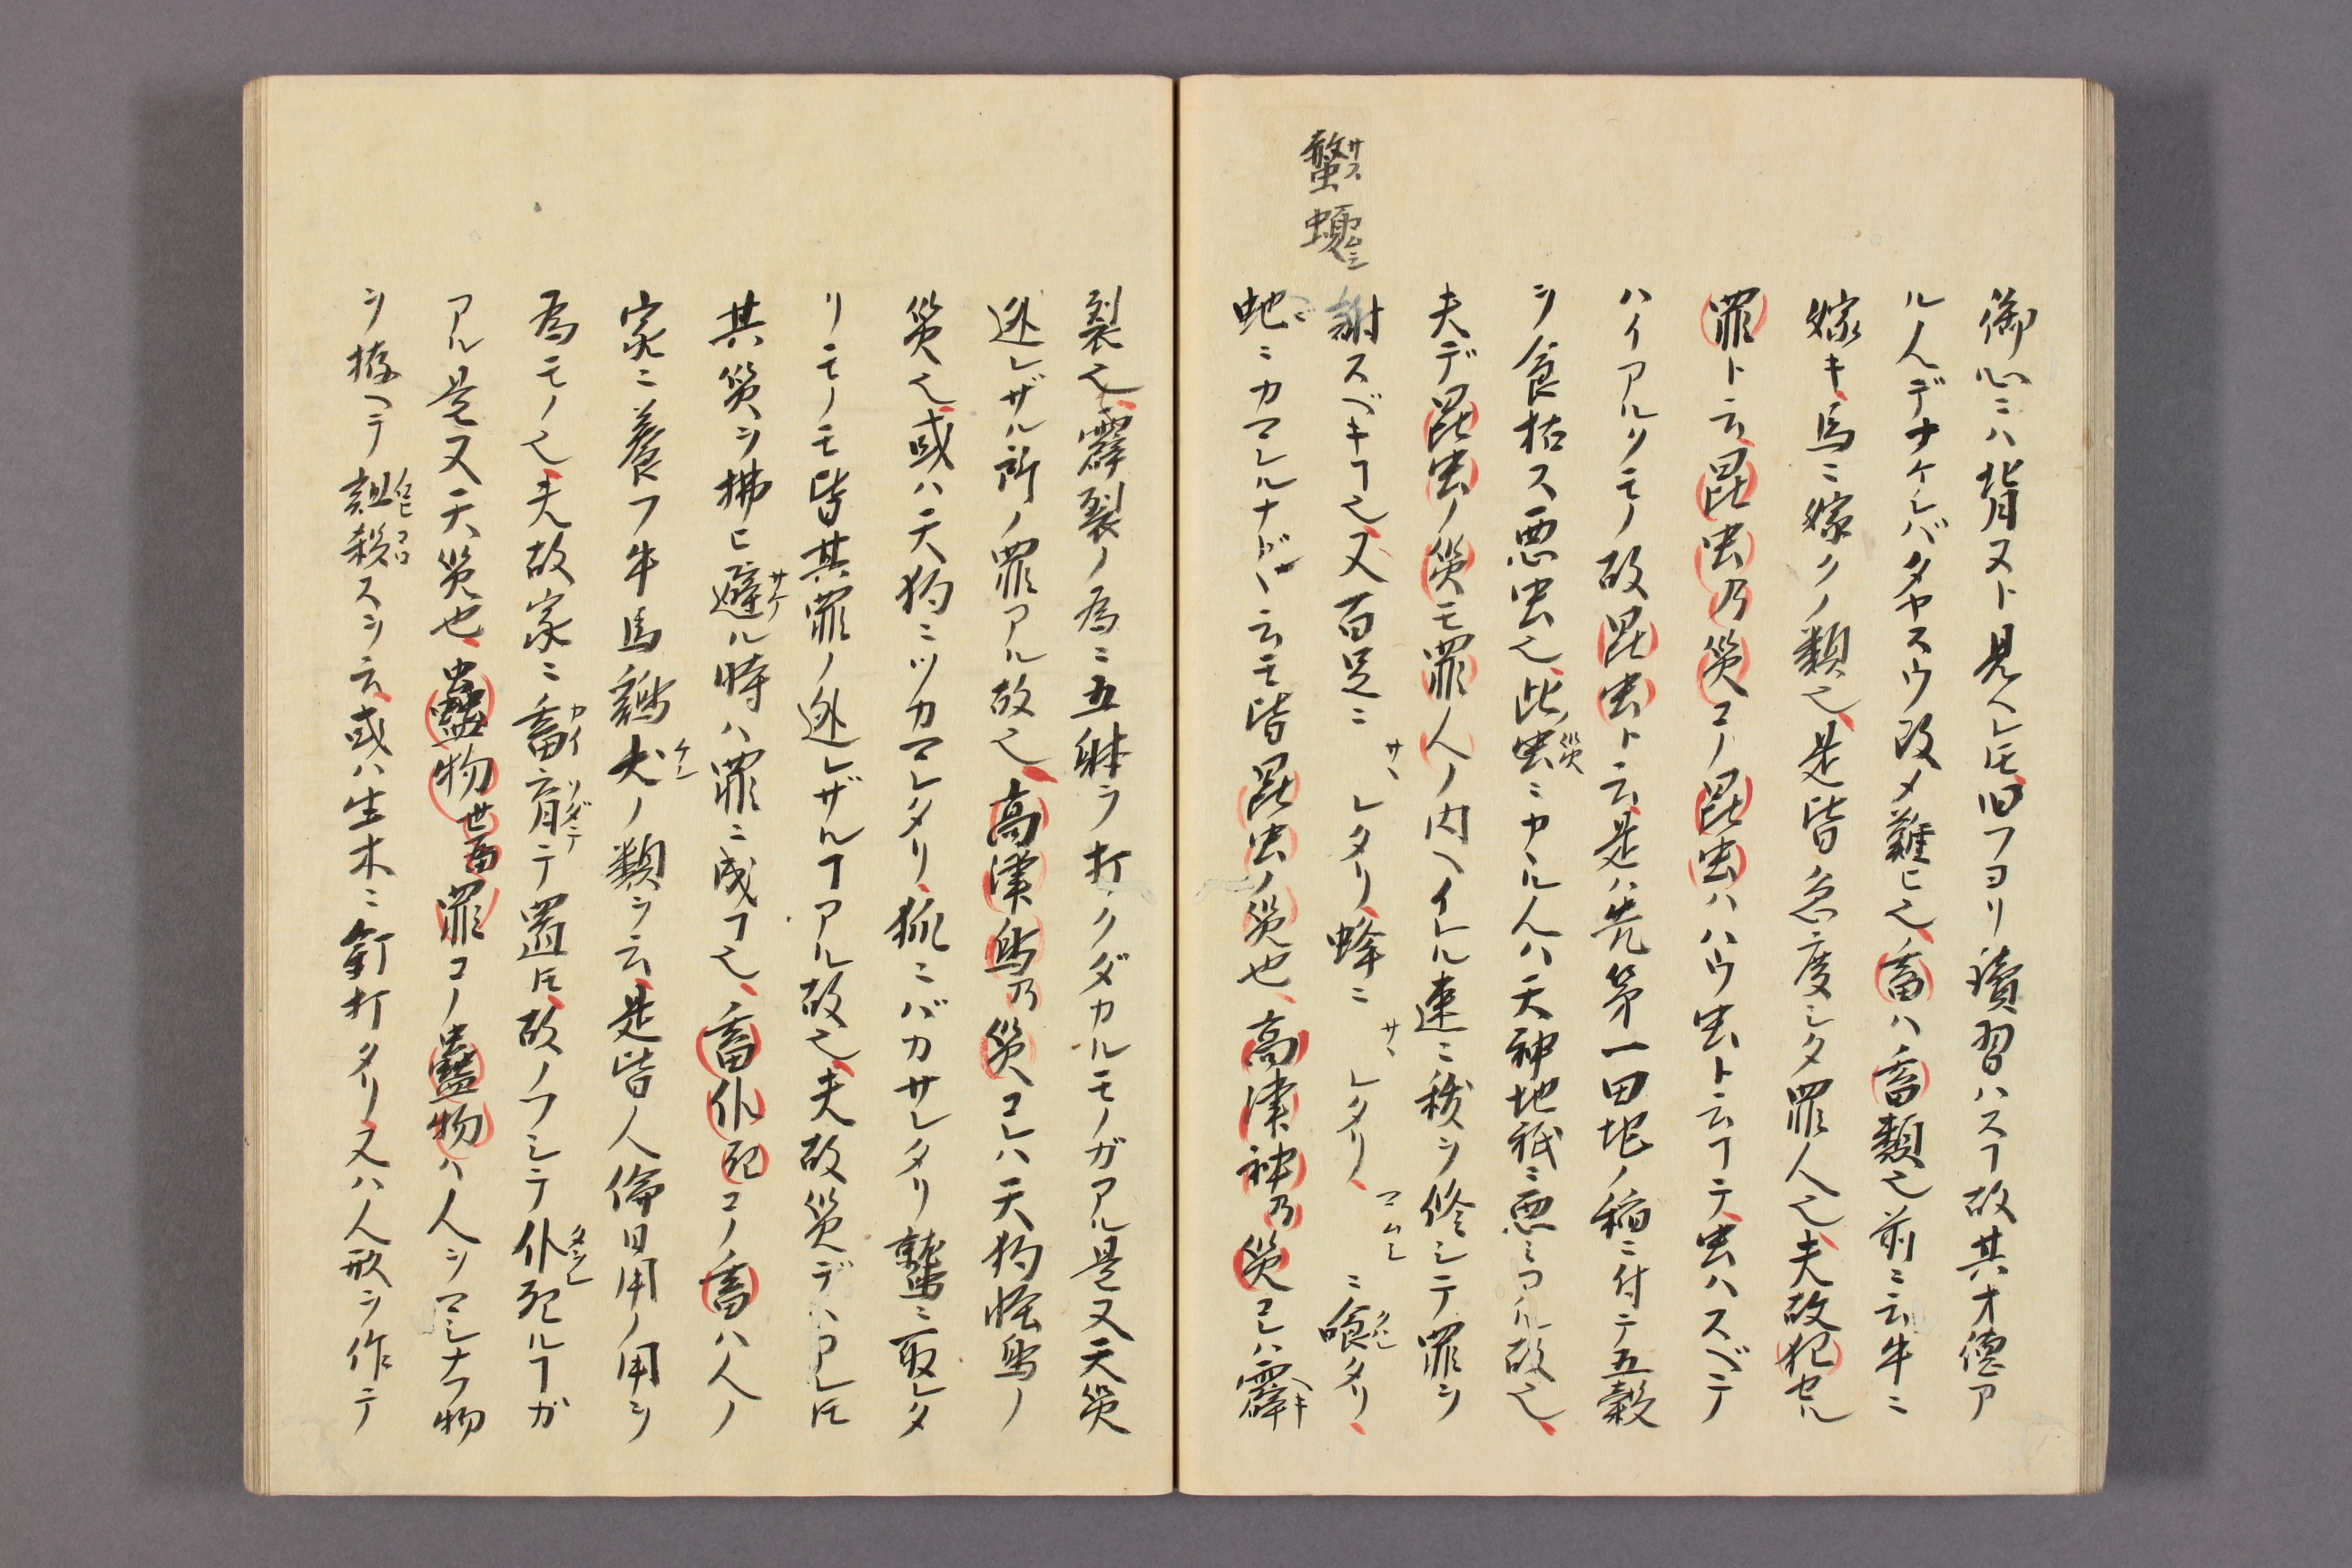 御心ニハ背ヌト見ヘレ𪜈旧フヨリ讀習ハスヿ故其才德ア
ル人デナケレバタヤスウ改メ難ヒ也、畜ハ畜類也前ニ云牛ニ
嫁キ、馬ニ嫁クノ類也、是皆急度シタ罪人也、夫故犯セル
罪ト云、昆虫乃災コノ昆虫ハハウ虫ト云ヿテ、虫ハスベテ
ハイアルクモノ故昆虫ト云、是ハ先第一田地ノ稲ニ付テ五穀
ヲ食枯ス悪虫也、此虫災ニカヽル人ハ天神地祇ニ悪ミアル故也、
夫デ昆虫ノ災モ罪人ノ内ヘイレル速ニ秡ヲ修シテ罪ヲ
螫サス 蝮マムシ
謝スベキヿ也、又百足ニサヽレタリ、蜂ニサヽレタリ、マムシニ喰クハレタリ、
蛇ニカマレルナドヽ云モ皆昆虫ノ災也、高津神乃災コレハ霹ヘキ
裂也、霹裂ノ為ニ五躰ヲ打クダカルモノガアル是又天災
迯レザル所ノ罪アル故也、高津鳥乃災コレハ天狗怪鳥ノ
災也、或ハ天狗ニツカマレタリ、狐ニバカサレタリ鷲ニ取レタ
リモノモ皆其罪ノ迯レザルヿアル故也、夫故災デハアレ𪜈
其災ヲ拂ヒ避サケル時ハ罪ニ成ヿ也、畜仆死コノ畜ハ人ノ
家ニ養フ牛馬鶏犬ケンノ類ヲ云、是皆人倫日用ノ用ヲ
為モノ也、夫故家ニ畜カイ育ソダテテ置𪜈、故ノフシテ仆タフレ死ルヿガ
アル是又天災也、蠱物世畄罪コノ蠱物ハ人ヲマシナフ物
ヲ拵ヘテ詛殺スヲ云、或ハ生木ニ釘打タリ又ハ人形ヲ作テ